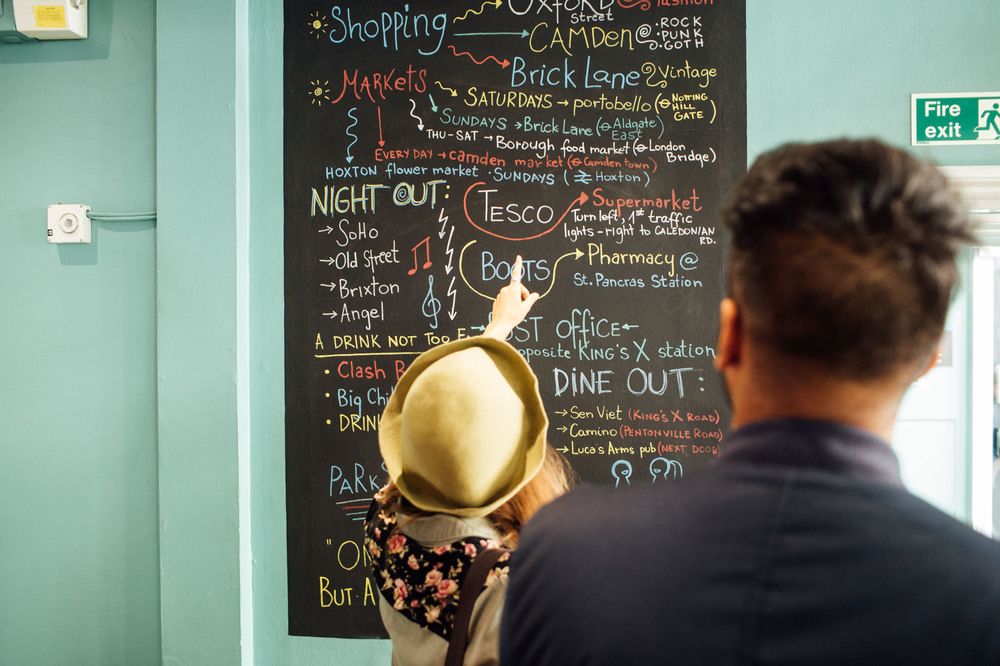 Shopping
OXFORD
Street
fashion
CAMDEN @ ROCK
PUNK
GOTH
Brick Lane @ Vintage
MARKETS
SATURDAYS → portobello (⊖ NOTTING
HILL
GATE)
SUNDAYS → Brick Lane (⊖ Aldgate
East)
THU-SAT → Borough food market (⊖ London
Bridge)
EVERY DAY → camden market (⊖ Camden town)
HOXTON flower market · SUNDAYS ( Hoxton)
NIGHT OUT:
→ SoHo
→ Old Street
→ Brixton
→ Angel
TESCO
Supermarket
Turn left, 1st traffic
lights - right to CALEDONIAN
RD.
BOOTS
Pharmacy @
St. Pancras Station
OST office ←
opposite KING'S X station
A DRINK NOT TOO
• Clash B
• Big Chi
• DRIN
DINE OUT:
→ Sen Viet (KING'S X ROAD)
→ Camino (PENTONVILLE ROAD)
→ Lucas Arms pub (NEXT DOOR)
PARKS
"ON
BUT A
Fire
exit